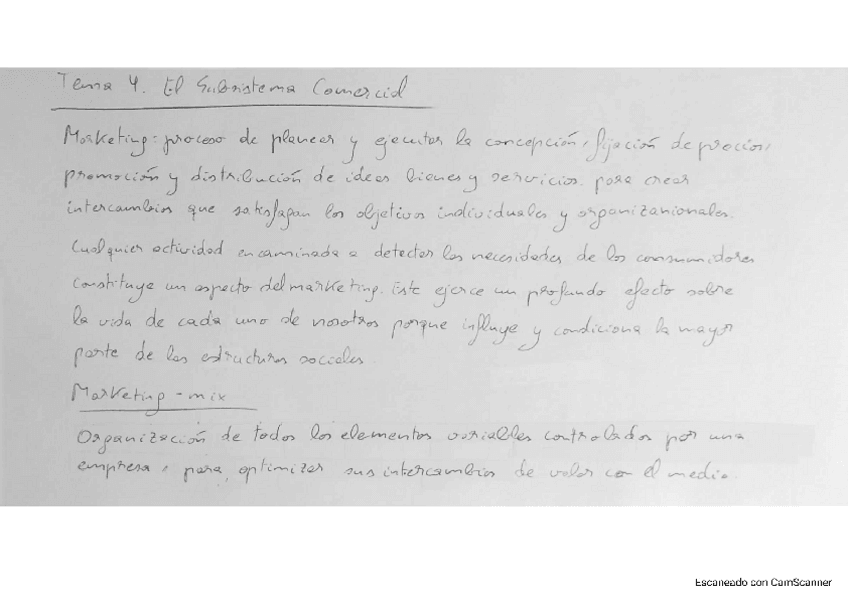 Tema 4. El Subsistema Comercial
Marketing: proceso de planear y ejecutar la concepción, fijación de precios,
promoción y distribución de ideas bienes y servicios. para crear
intercambios que satisfagan los objetivos individuales y organizanionales.
Cualquier actividad encaminada a detectar las necesidades de los consumidores
constituye un aspecto del marketing. Este ejerce un profundo efecto sobre
la vida de cada uno de nosotros porque influye y condiciona la mayor
parte de las estructuras sociales.
Marketing - mix
Organización de todos los elementos variables controlados por una
empresa, para optimizar sus intercambios de valor con el medio.
Escaneado con CamScanner